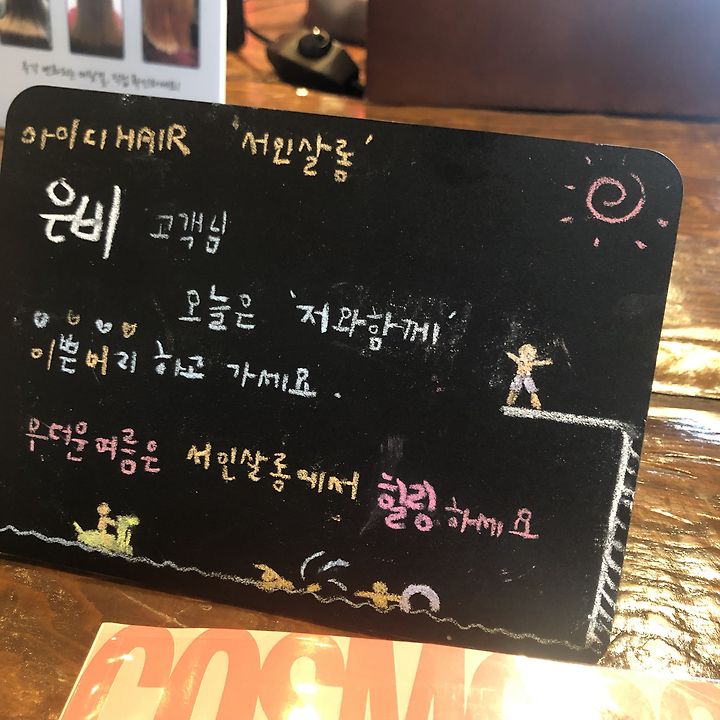 아이디HAIR '서인살롱'
은비 고객님
오늘은 '저와함께'
이쁜머리 하고 가세요.
무더운여름은 서인살롱에서 힐링하세요
COSMO